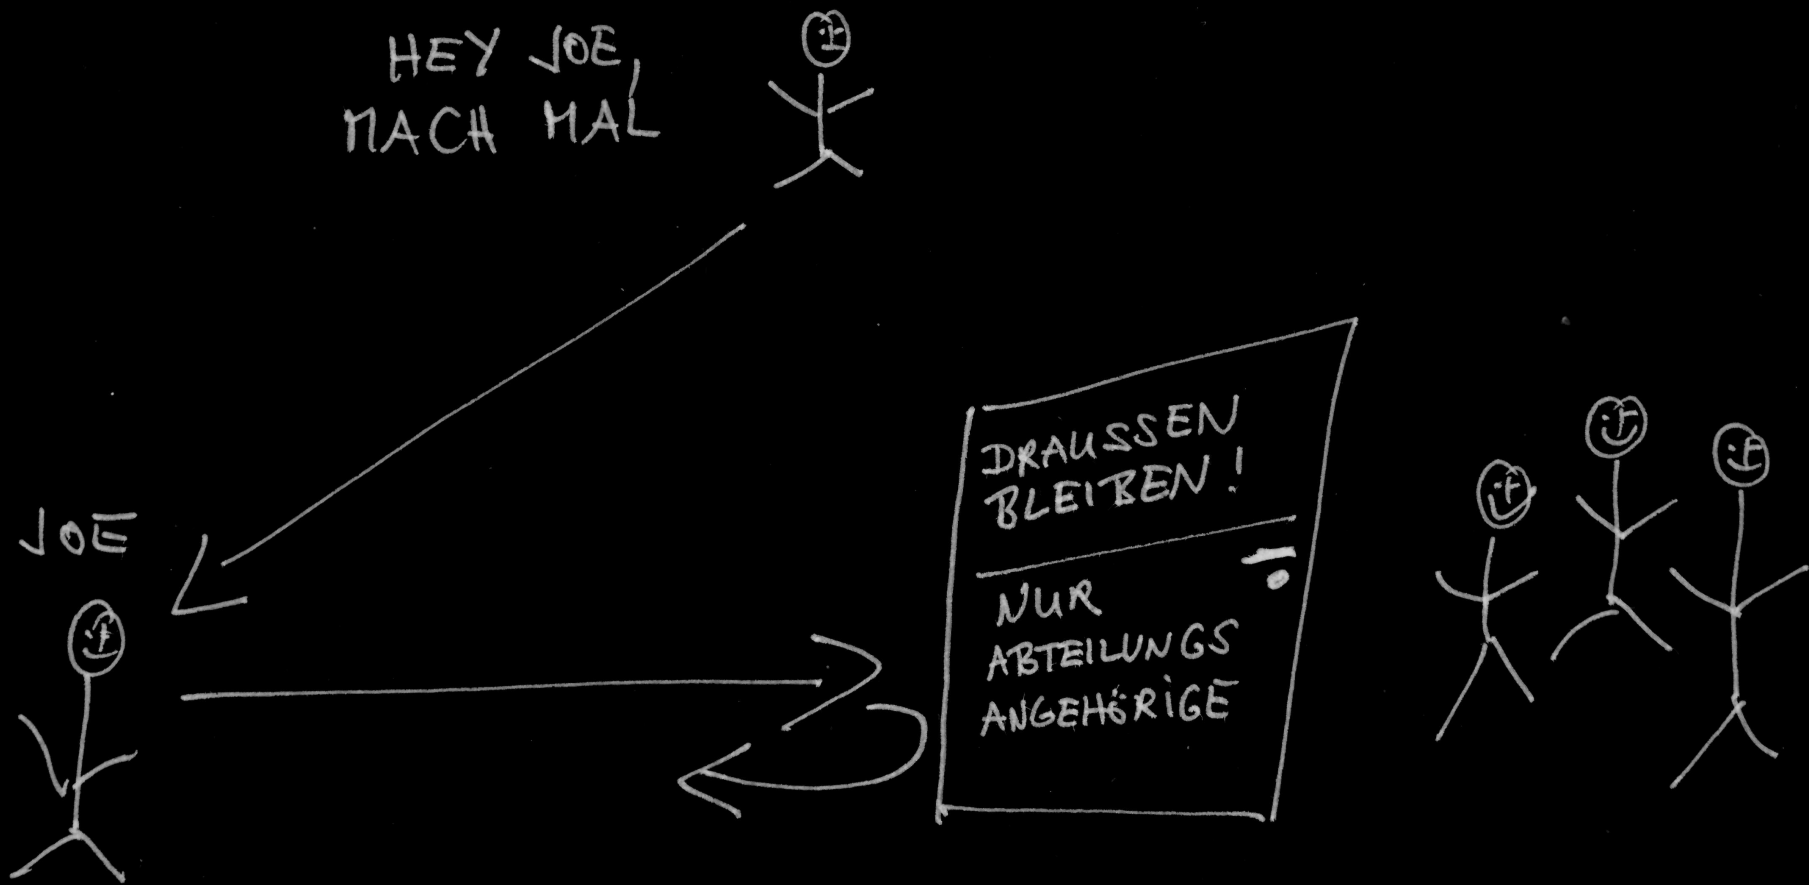 HEY JOE,
MACH MAL
JOE
DRAUSSEN
BLEIBEN!
NUR
ABTEILUNGS
ANGEHÖRIGE